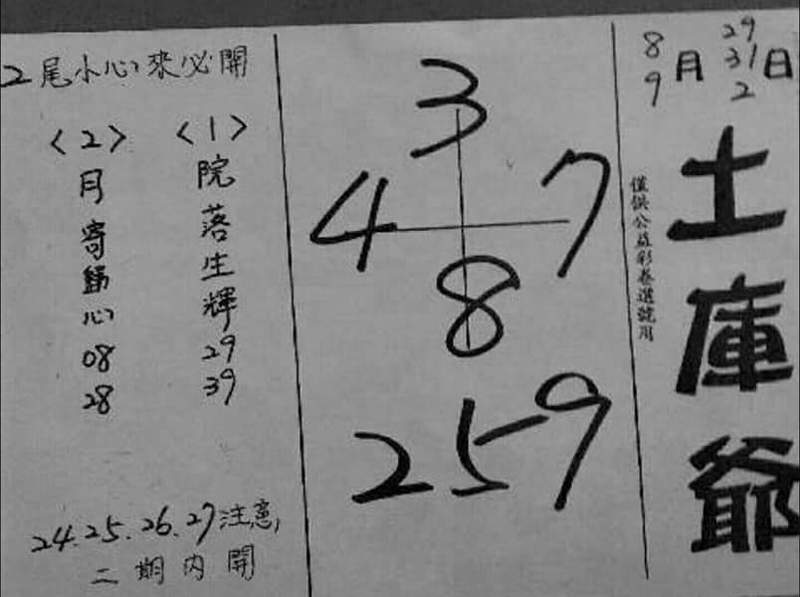 8 9 月 29 31 2 日
土庫爺
僅供公益彩券選號用
3
4 7
8
259
2尾小心來必開
<1>院落生輝 29 39
<2>月寄歸心 08 28
24.25.26.27注意,
二期內開